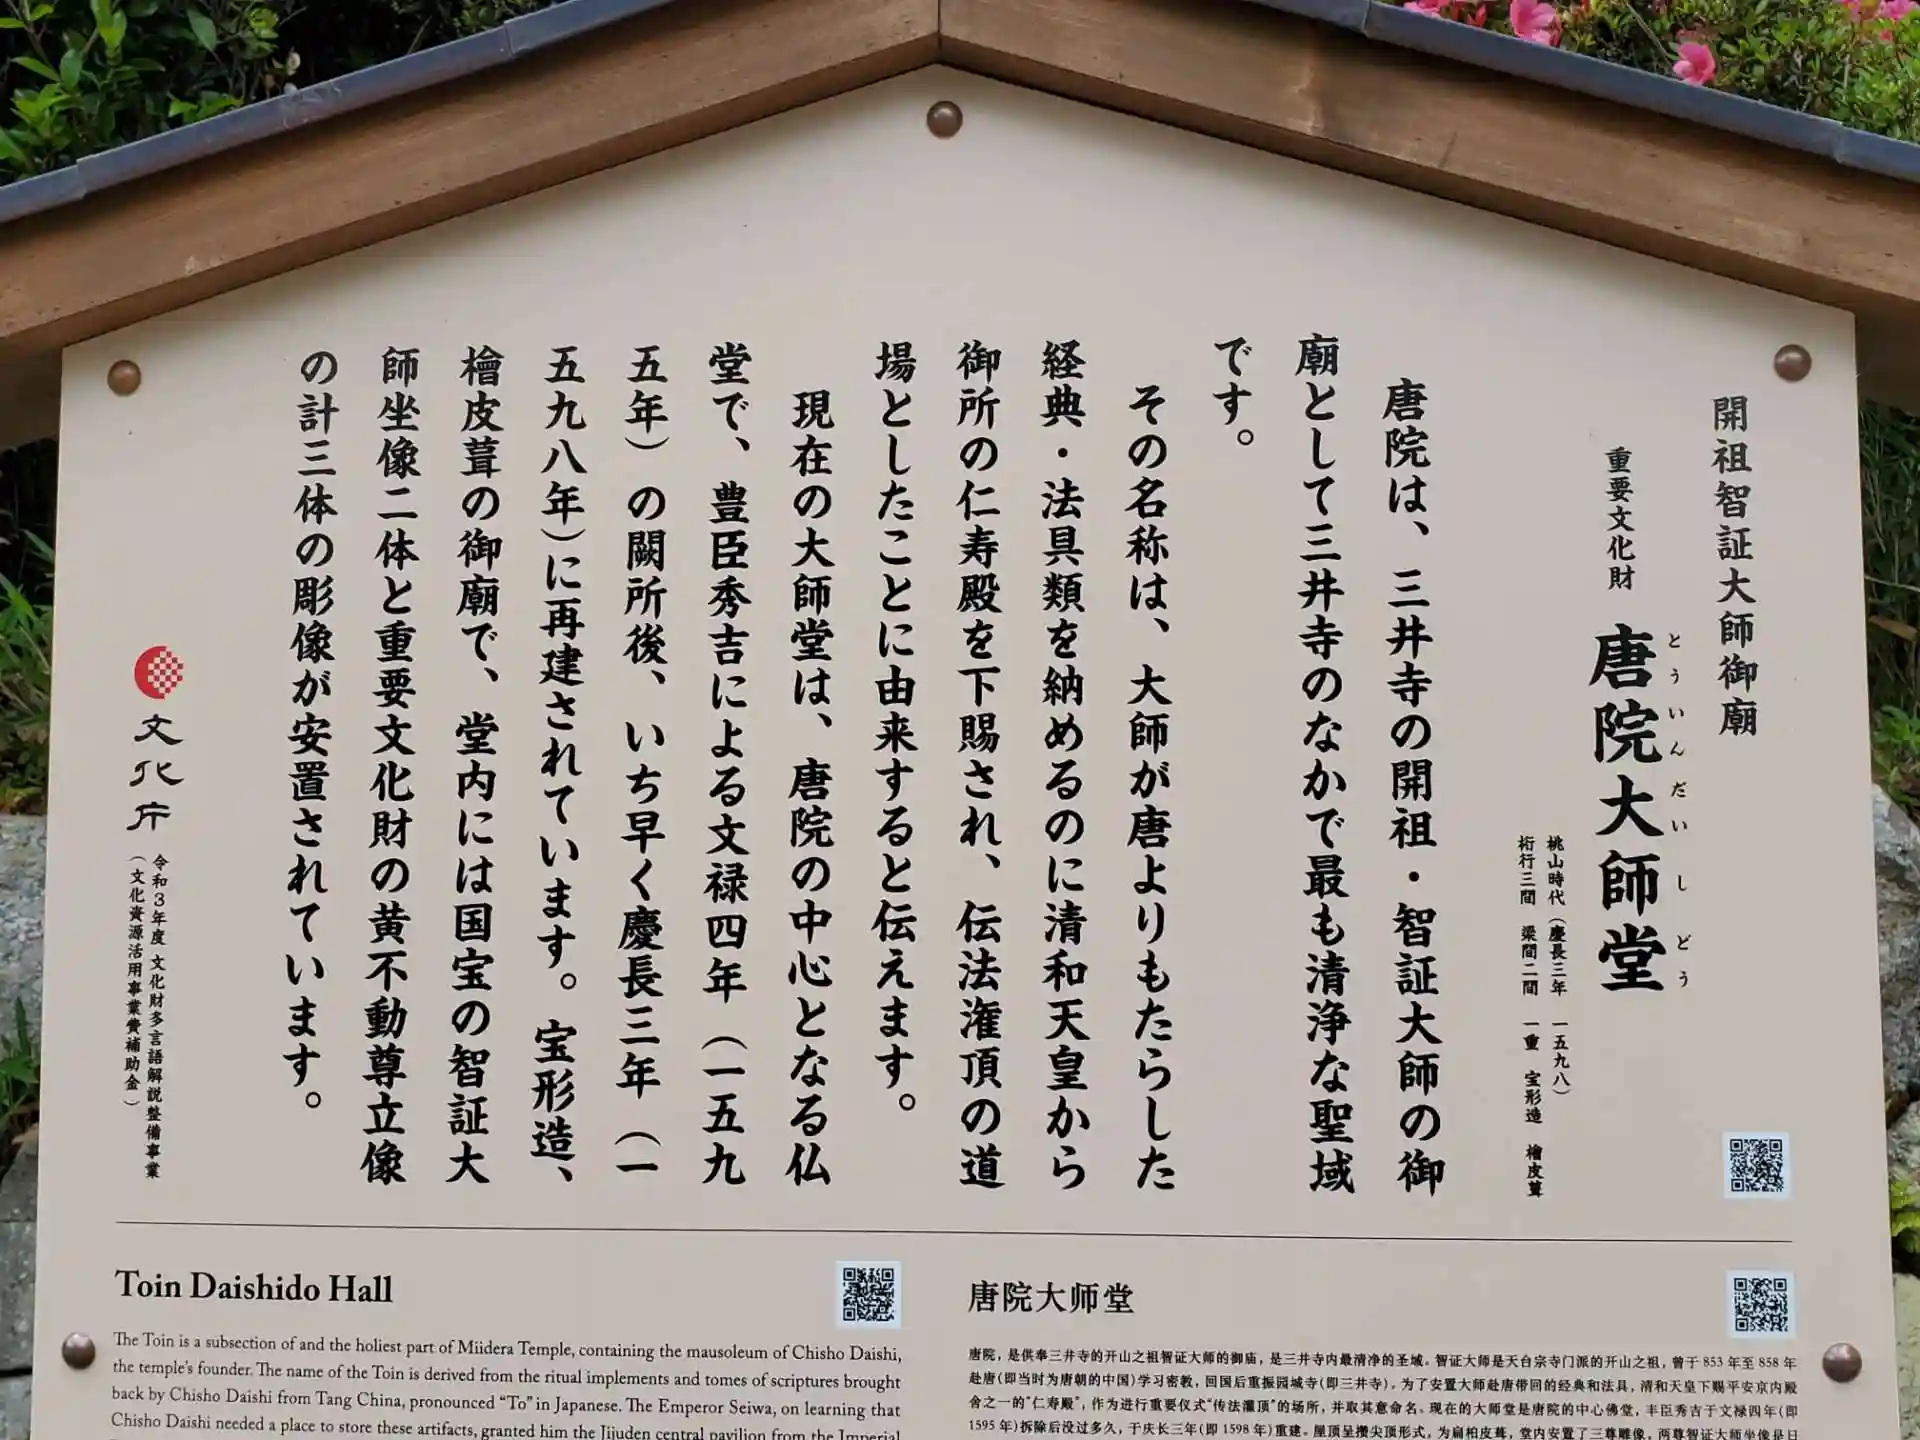 開祖智証大師御廟
重要文化財 唐院大師堂
とういんだいしどう
桃山時代（慶長三年 一五九八）
桁行三間 梁間二間 一重 宝形造 檜皮葺
唐院は、三井寺の開祖・智証大師の御
廟として三井寺のなかで最も清浄な聖域
です。
その名称は、大師が唐よりもたらした
経典・法具類を納めるのに清和天皇から
御所の仁寿殿を下賜され、伝法潅頂の道
場としたことに由来すると伝えます。
現在の大師堂は、唐院の中心となる仏
堂で、豊臣秀吉による文禄四年（一五九
五年）の闕所後、いち早く慶長三年（一
五九八年）に再建されています。宝形造、
檜皮葺の御廟で、堂内には国宝の智証大
師坐像二体と重要文化財の黄不動尊立像
の計三体の彫像が安置されています。
文化庁
令和3年度 文化財多言語解説整備事業
（文化資源活用事業費補助金）
Toin Daishido Hall
The Toin is a subsection of and the holiest part of Miidera Temple, containing the mausoleum of Chisho Daishi,
the temple's founder. The name of the Toin is derived from the ritual implements and tomes of scriptures brought
back by Chisho Daishi from Tang China, pronounced “To” in Japanese. The Emperor Seiwa, on learning that
Chisho Daishi needed a place to store these artifacts, granted him the Jijuden central pavilion from the Imperial
唐院大师堂
唐院，是供奉三井寺的开山之祖智证大师的御庙，是三井寺内最清净的圣域。智证大师是天台宗寺门派的开山之祖，曾于 853 年至 858 年
赴唐（即当时为唐朝的中国）学习密教，回国后重振园城寺（即三井寺）。为了安置大师赴唐带回的经典和法具，清和天皇下赐平安京内殿
舍之一的“仁寿殿”，作为进行重要仪式“传法灌顶”的场所，并取其意命名。现在的大师堂是唐院的中心佛堂，丰臣秀吉于文禄四年（即
1595 年）拆除后没过多久，于庆长三年（即 1598 年）重建。屋顶呈攒尖顶形式，为扁柏皮葺，堂内安置了三尊雕像，两尊智证大师坐像是日